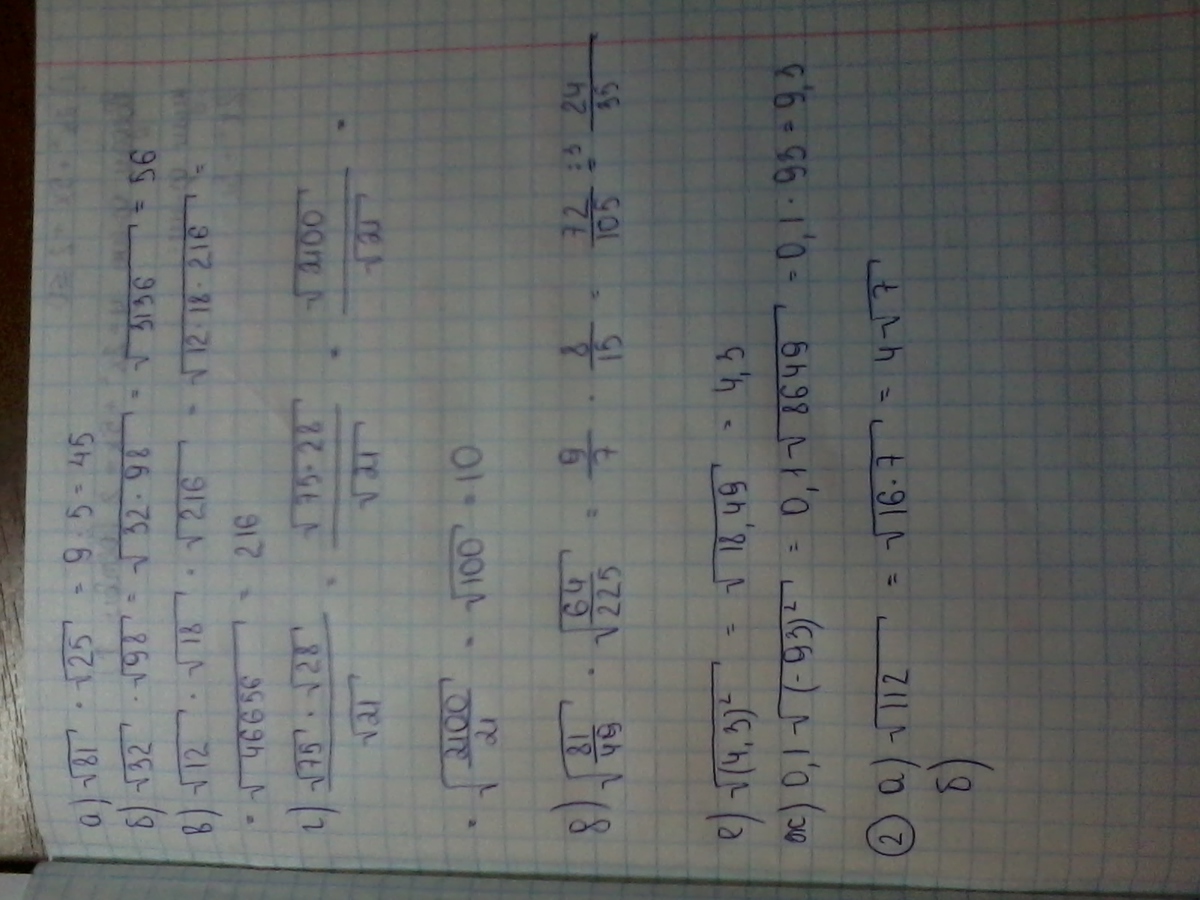 а) √81 · √25 = 9 · 5 = 45
б) √32 · √98 = √32·98 = √3136 = 56
в) √12 · √18 · √216 = √12·18·216 =
= √46656 = 216
г) √75 · √28 / √21 = √75·28 / √21 = √2100 / √21 =
= √2100/21 = √100 = 10
д) √81/49 · √64/225 = 9/7 · 8/15 = 72/105 :3 = 24/35
е) √(4,3)² = √18,49 = 4,3
ж) 0,1√(-93)² = 0,1√8649 = 0,1 · 93 = 9,3
② а) √112 = √16·7 = 4√7
б)